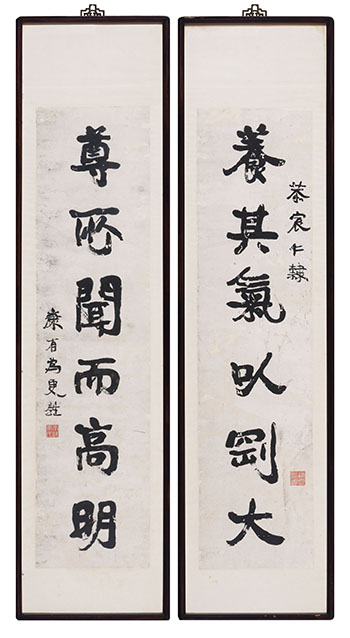 養其氣以剛大
恭宸仁隸
尊所聞而高明
康有為更甡